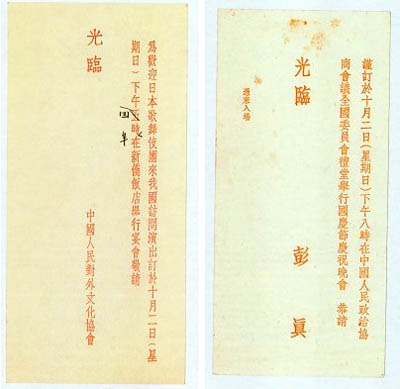 為歡迎日本歌舞伎團來我國訪問演出訂於十月二日（星
期日）下午時在新僑飯店舉行宴會敬請
四
光臨
中國人民對外文化協會
謹訂於十月二日（星期日）下午八時在中國人民政治協
商會議全國委員會禮堂舉行國慶節慶祝晚會 恭請
光臨
彭眞
憑柬入場